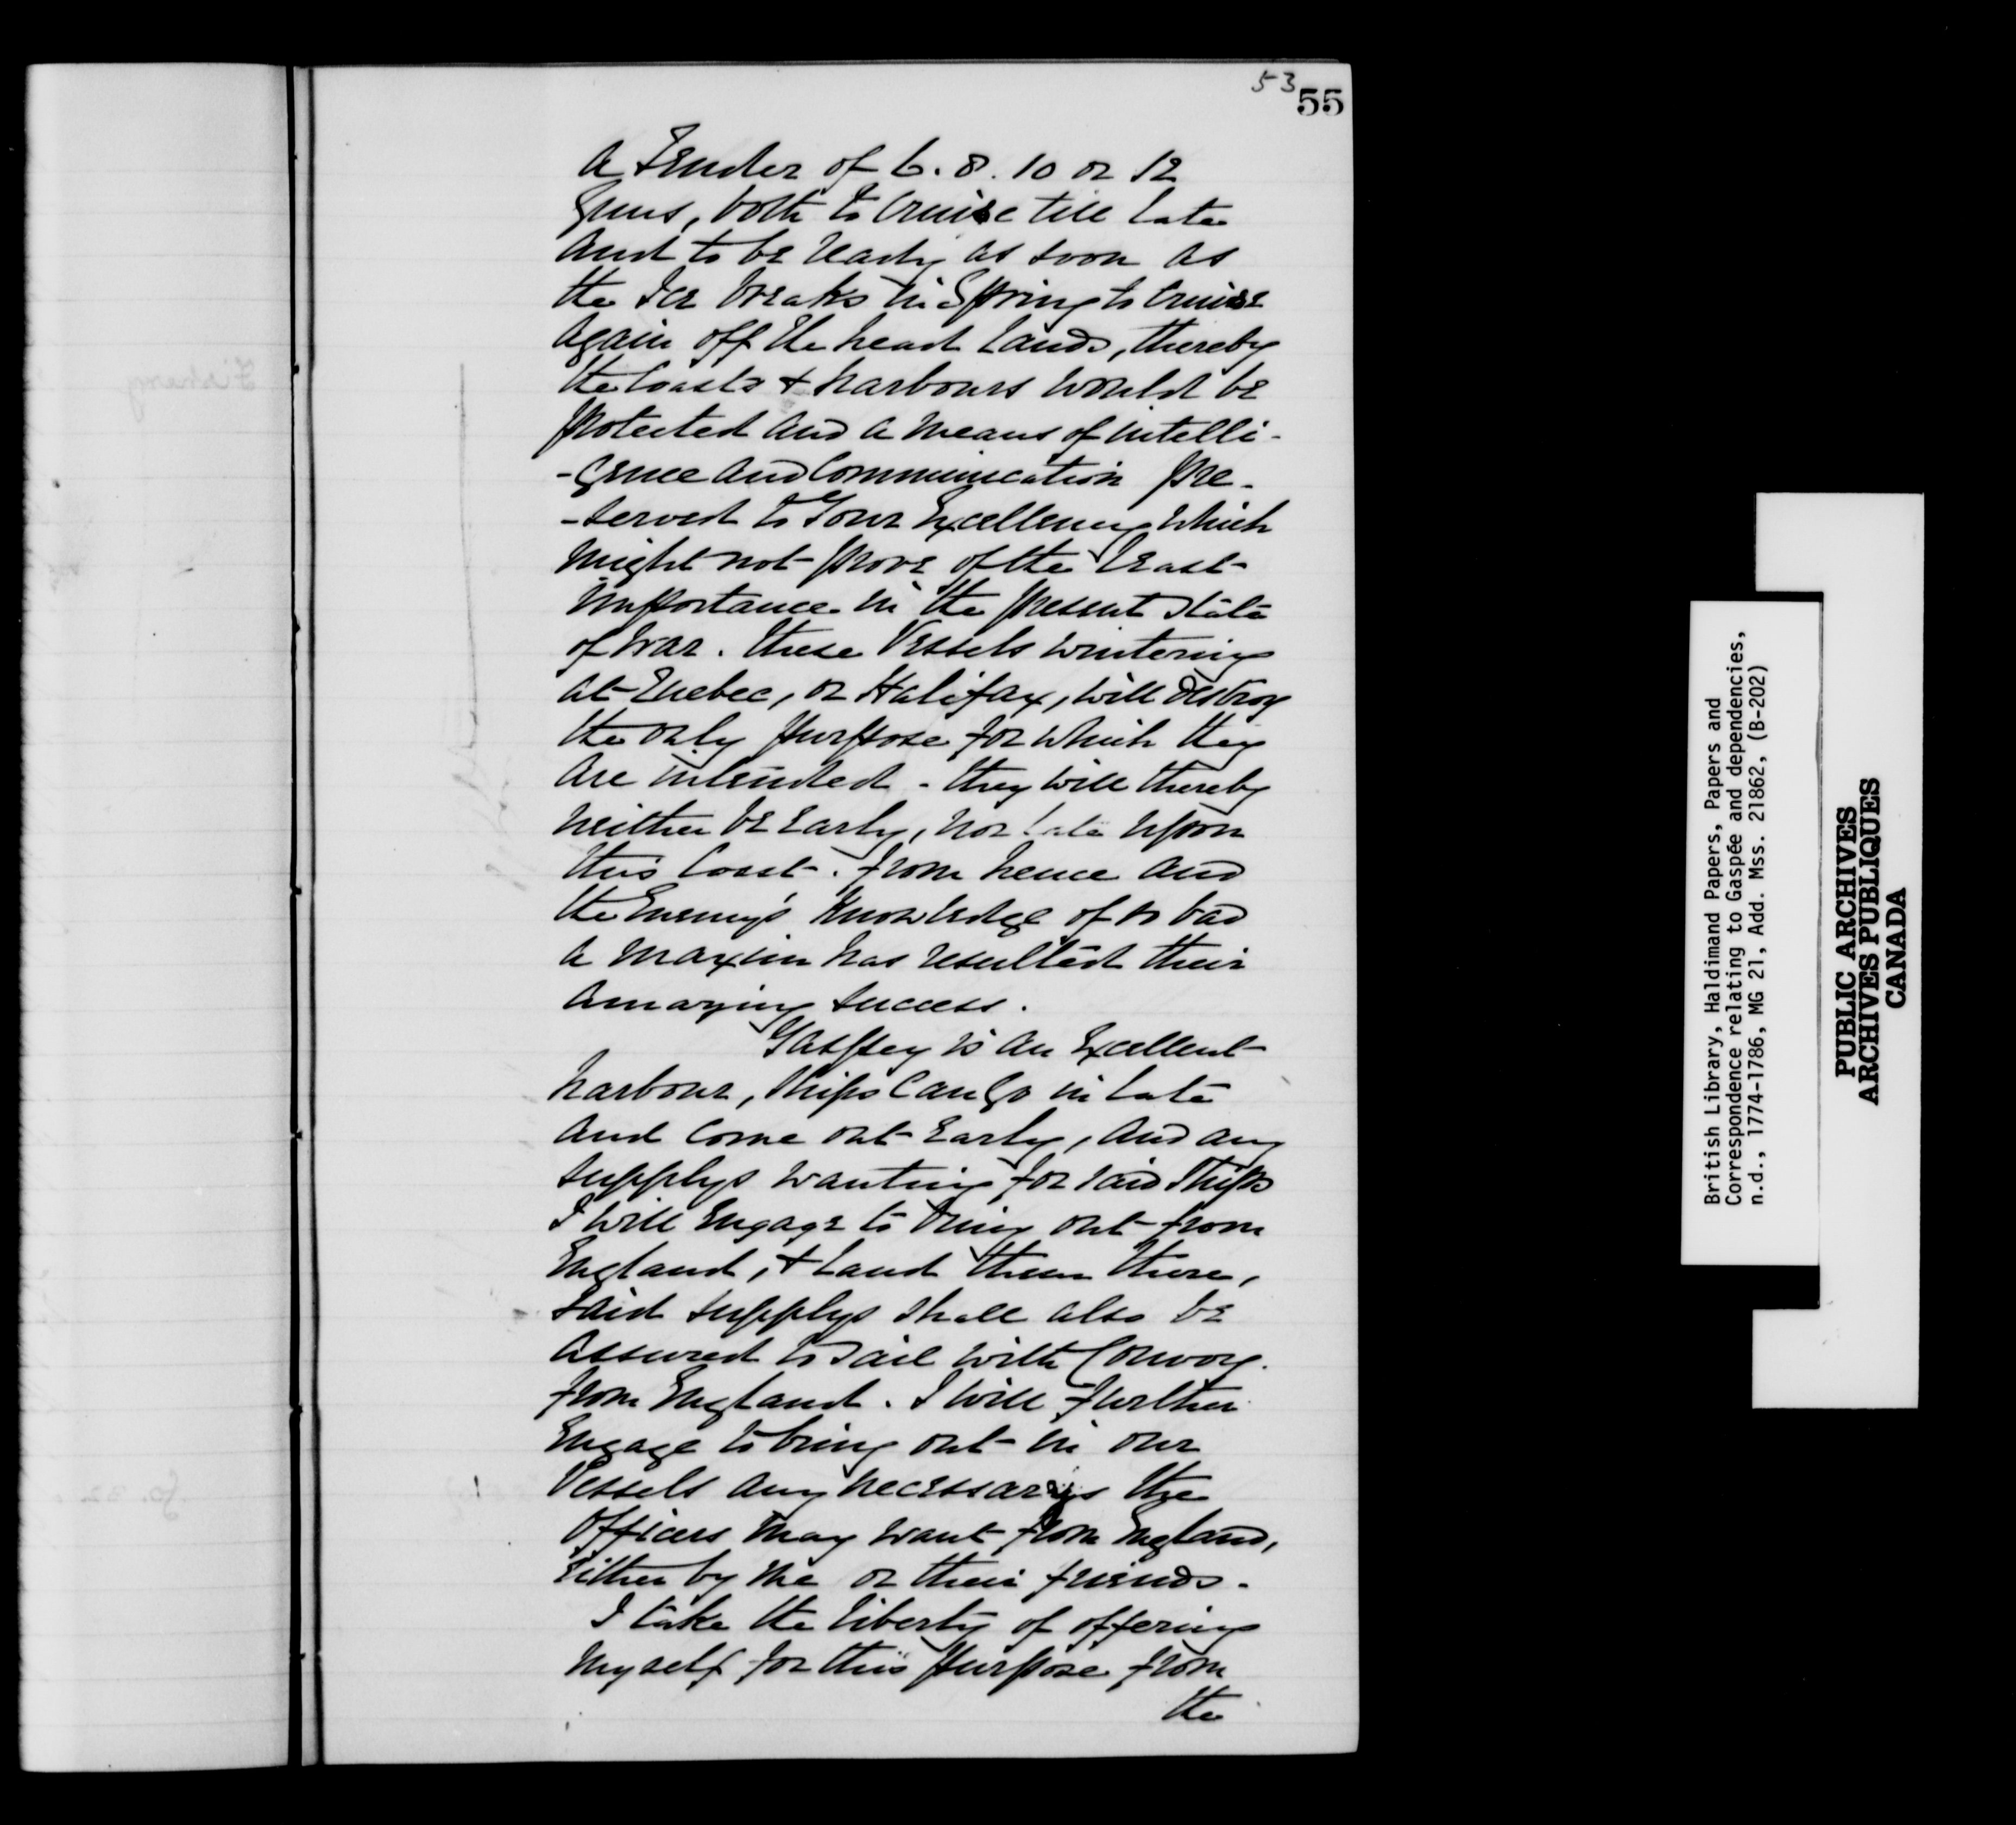 53
55
a Tender of 6. 8. 10 or 12
Guns, both to Cruise till late
and to be ready as soon as
the Ice breaks in Spring to Cruise
again off the head lands, thereby
the Coasts & harbours would be
protected and a means of intelli-
-gence and Communication pre-
-served to Your Excellency which
might not prove of the least
importance in the present state
of War. These Vessels wintering
at Quebec, or Halifax, will destroy
the only purpose for which they
are intended - they will thereby
neither be early, nor late upon
this Coast. from hence and
the Enemy's Knowledge of so bad
a maxim has resulted their
amazing success.
Gaspey is an Excellent
harbour, ships Can go in late
and Come out Early, and any
supplys wanting for said Ships
I will Engage to bring out from
England, & land them there,
said supplys shall also be
assured to sail with Convoy.
from England. I will further
Engage to bring out in our
Vessels any necessarys the
Officers may want from England,
either by me or their friends.
I take the liberty of offering
myself for this purpose from
the
Fishery
British Library, Haldimand Papers, Papers and
Correspondence relating to Gaspée and dependencies,
n.d., 1774-1786, MG 21, Add. Mss. 21862, (B-202)
PUBLIC ARCHIVES
ARCHIVES PUBLIQUES
CANADA